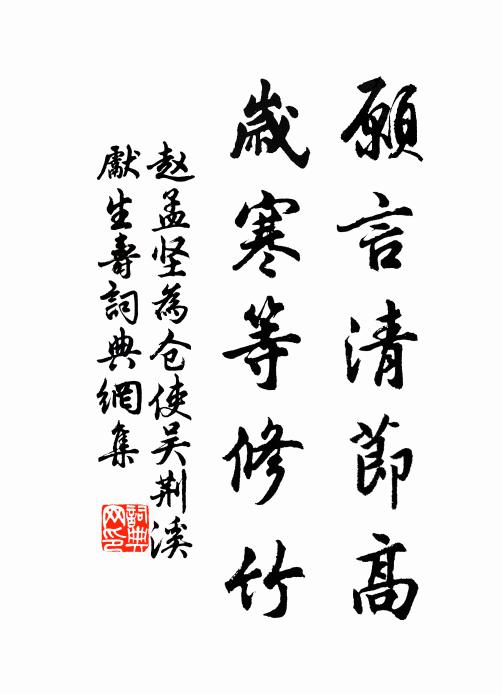 願言清節高
歲寒等修竹
赵孟坚為仓使吴荆溪
獻生壽詞典網集
詞典网印